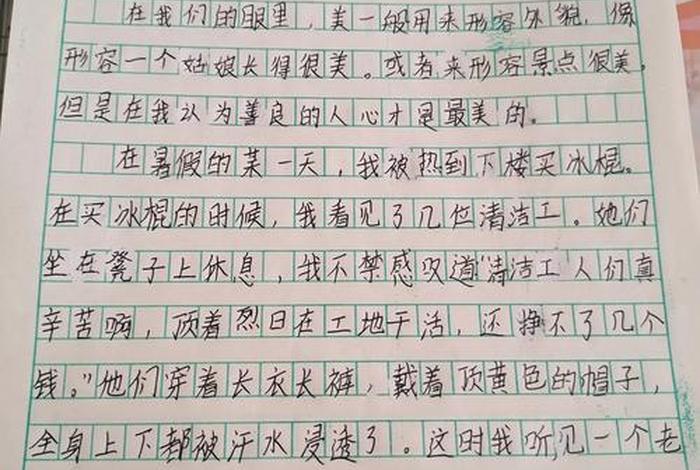 在我们的眼里，美一般用来形容外貌，像
形容一个姑娘长得很美。或者来形容景点很美，
但是在我认为善良的人心才是最美的。
在暑假的某一天，我被热到下楼买冰棍。
在买冰棍的时候，我看见了几位清洁工。她们
坐在凳子上休息，我不禁感叹道“清洁工人们真
辛苦啊，顶着烈日在工地干活，还挣不了几个
钱。”他们穿着长衣长裤，戴着顶黄色的帽子，
全身上下都被汗水浸透了。这时我听见一个老